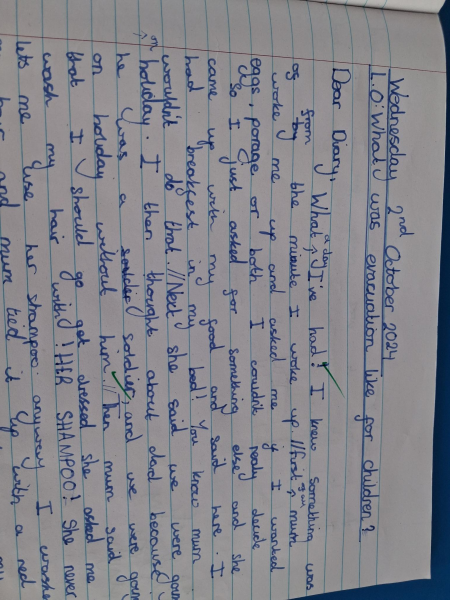 Wednesday 2nd October 2024
L.O: What was evacuation like for children?
Dear Diary, What a day I've had! I know something was
og from by the minute I woke up // first my mum
woke me up and asked me if I wanted
eggs, porage or both I couldnt realy decide
So I just asked for something else and she
came up with my good and said here. I
had breakfest in my bed! You know mum
wouldn't do that. // Next she said we were goin
on holiday. I then thought about dad because
he was a soldier, and we were goin
on holiday without him. // Then mum said
that I should go get dressed she asked me
wash my hair with! HER SHAMPOO! She never
lets me use her shampoo. anyway I washe
hair and mum tied it up with a red